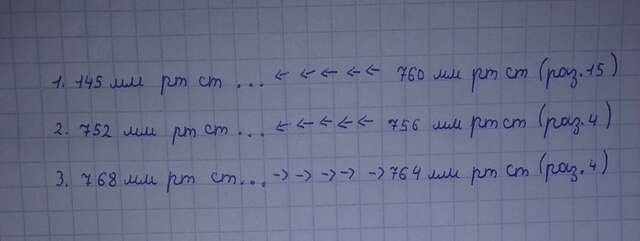 1. 145 мм рт ст ... ← ← ← ← ← 760 мм рт ст (раз. 15)
2. 752 мм рт ст ... ← ← ← ← ← 756 мм рт ст (раз. 4)
3. 768 мм рт ст ... → → → → → 764 мм рт ст (раз. 4)